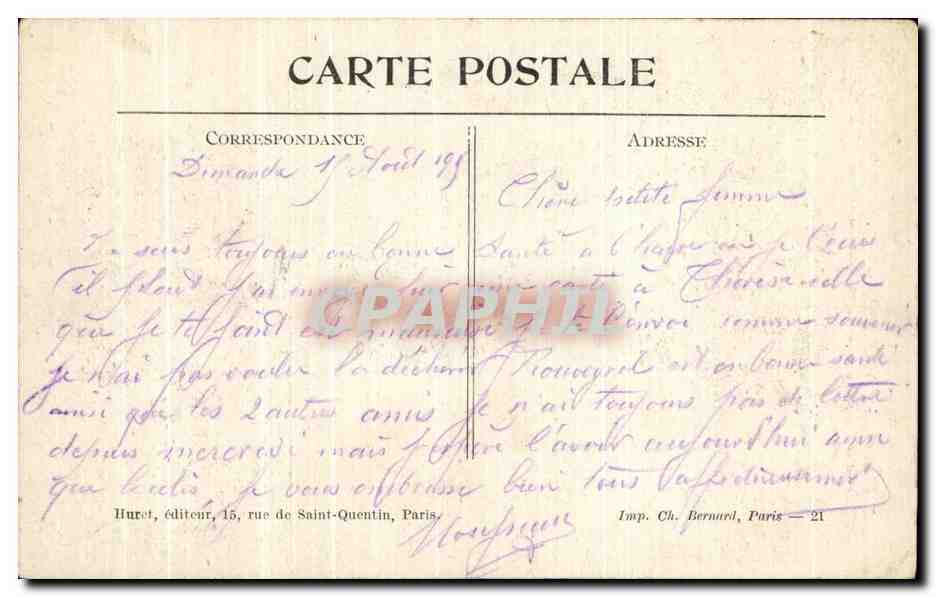 CARTE POSTALE
CORRESPONDANCE
ADRESSE
Dimanche 15 Août 191
Chère petite femme
Je suis toujours en bonne santé à l'heure où je t'écris
il pleut j'ai envoyé hier une carte à Thérèse celle
que je te joint est je te l'envoi comme souvenir
je n'ai pas voulu la déchirer est en bonne santé
ainsi que les 2 autres amis je n'ai toujours pas de lettre
depuis mercredi mais j'espère l'avoir aujourd'hui ainsi
que je vous embrasse bien tous affectueusement
CPAPHIL
Huret, éditeur, 15, rue de Saint-Quentin, Paris.
Imp. Ch. Bernard, Paris — 21